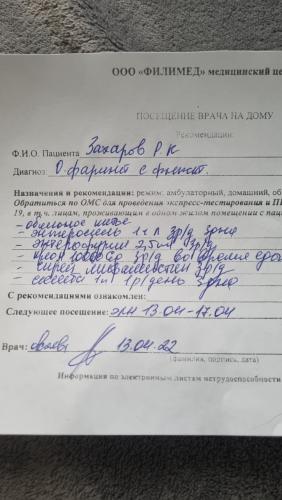 ООО «ФИЛИМЕД» медицинский це
ПОСЕЩЕНИЕ ВРАЧА НА ДОМУ
Рекомендации:
Ф.И.О. Пациента Захаров Р К
Диагноз: О фарингит с
Назначения и рекомендации: режим: амбулаторный, домашний, об
Обратиться по ОМС для проведения экспресс-тестирования и П
19, в т.ч. лицам, проживающим в одном жилом помещении с паци
- обильное питье
- энтеросгель 1 ч л 3р/д 3дня
- энтерофурил 2,5мл 3р/д
- креон 10000 ед 3р/д во время еды
- спрей мирамистин 3р/д
1р/день 3дня
С рекомендациями ознакомлен:
Следующее посещение: ЭЛН 13.04-17.04
Врач: 13.04.22
(фамилия, подпись, дата)
Информация по электронным листам нетрудоспособности